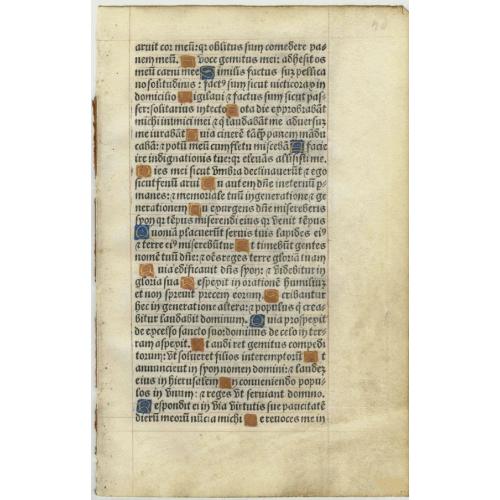 aruit cor meũ: qꝛ oblitus sum comedere pa-
nem meũ. A voce gemitus mei: adhesit os
meũ carni mee S imilis factus suꝫ pellica
no solitudinis: factꝰ sum sicut nicticorax in
domicilio V igilaui ⁊ factus sum sicut pas-
ser: solitarius in tecto T ota die exprobrabãt
michi inimici mei: ⁊ q̃ laudabãt me aduersuꝫ
me iurabãt Q uia cinerẽ tãq̃ panem mãdu
cabã: ⁊ potũ meũ cum fletu miscebã A facie
ire indignationis tue: qꝛ eleuãs allisisti me.
D ies mei sicut vmbra declinauerũt ⁊ ego
sicut fenũ arui T u autem dñe ineternũ p-
manes: ⁊ memoriale tuũ in generatione ⁊ ge
nerationem T u exurgens dñe misereberis
syon qꝛ tẽpus miserendi eius qꝛ venit tẽpus
Q uoniã placuerũt seruis tuis lapides eiꝰ
⁊ terre eiꝰ miserebũtur E t timebũt gentes
nomẽ tuũ dñe: ⁊ oẽs reges terre gloriã tuam
Q uia edificauit dñs syon: ⁊ videbitur in
gloria sua R espexit in orationẽ humiliuꝫ
et non spreuit precem eorum S cribantur
hec in generatione altera: ⁊ populus q̃ crea-
bitur laudabit dominum. Q uia prospexit
de excelso sancto suo: dominus de celo in ter-
ram aspexit. V t audiret gemitus compedi
torum: vt solueret filios interemptorũ V t
annuncient in syon nomen domini: ⁊ laudeꝫ
eius in hierusalem I n conueniendo popu-
los in vnum: ⁊ reges vt seruiant domino.
R espondit ei in via virtutis sue paucitatẽ
dierũ meorũ nũcia michi N e reuoces me in